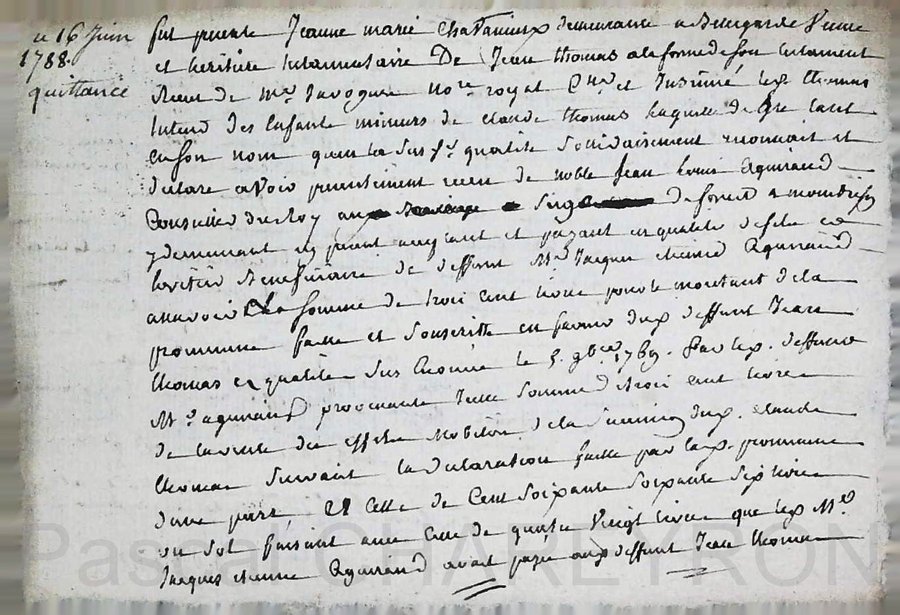 16 Juin
1788.
quittance
fut presente Jeanne marie Chattanieux demeurante a Bellegarde veuve
et heritiere testamentaire De Jean thomas a la forme de son testament
Recu de me Javogues nore royal et Insinué thomas
des Enfants mineurs de claude thomas de Gré tant
en son nom qualité Solidairement reconnait et
declare avoir presentement receu de noble Jean Louis Aguiraud
Conseiller du Roy de forest a montbrison
y demeurant present acceptant et payant en qualité de fils et
heritier Beneficiaire de deffunt Me Jacques etienne Aguiraud
a savoir La somme de trois cent livres pour le montant de la
promesse faitte et Souscritte en faveur dud deffunt Jean
thomas en qualité Sus enoncée le 5. 9bre 1769. par led. deffunt
Me aguiraud provenante laditte somme de trois cent livres
de la vente des effets Mobiliers de la dud. claude
thomas Suivant la declaration faitte par lad. promesse
d'une part et celle de Cent Soixante sept livres
un Sol faisant avec celle de quatre Vingt livres que led Me
Jacques etienne Aguiraud avait payé aud deffunt Jean thomas
Pascal CHAREYRON